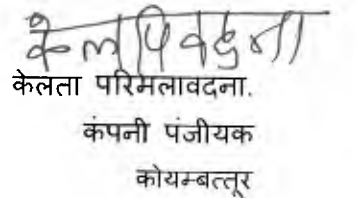 केलपिवदना
केलता परिमलावदना.
कंपनी पंजीयक
कोयम्बत्तूर